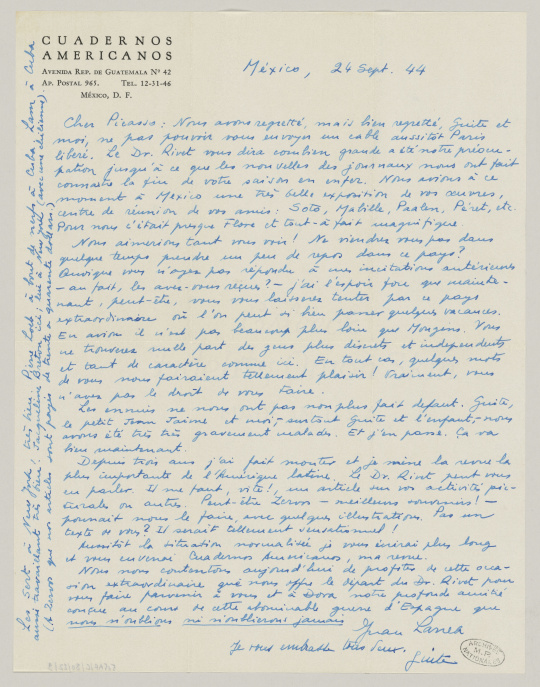 CUADERNOS
AMERICANOS
AVENIDA REP. DE GUATEMALA Nº 42
AP. POSTAL 965. TEL. 12-31-46
MÉXICO, D. F.
México, 24 Sept. 44
Cher Picasso: Nous avons regretté, mais bien regretté, Guite et
moi, ne pas pouvoir vous envoyer un cable aussitôt Paris
libéré. Le Dr. Rivet vous dira combien grande a été notre préoccu-
pation jusqu'à ce que les nouvelles des journaux nous ont fait
connaître la fin de votre saison en enfer. Nous avions à ce
moment à Mexico une très belle exposition de vos œuvres,
centre de réunion de vos amis: Soto, Mabille, Paalen, Péret, etc.
Pour nous c'était presque Flore et tout-à fait magnifique.
Nous aimerions tant vous voir! Ne viendrez vous pas dans
quelque temps prendre un peu de repos dans ce pays?
Quoique vous n'ayez pas répondu à mes invitations antérieures
- au fait, les avez-vous reçues? - j'ai l'espoir fixe que mainte-
nant, peut-être, vous vous laisserez tenter par ce pays
extraordinaire où l'on peut si bien passer quelques vacances.
En avion il n'est pas beaucoup plus loin que Mougins. Vous
ne trouverez nulle part des gens plus discrets et independents
et tant de caractère comme ici. En tout cas, quelques mots
de vous nous fairaient tellement plaisir! Vraiment, vous
n'avez pas le droit de vous taire.
Les ennuis ne nous ont pas non plus fait defaut. Guite,
le petit Juan Jaime et moi, - surtout Guite et l'enfant, - nous
avons été très très gravement malades. Et j'en passe. Ça va
bien maintenant.
Depuis trois ans j'ai fait monter et je mène la revue la
plus importante de l'Amérique latine. Le Dr. Rivet peut vous
en parler. Il me faut, vite!, un article sur vos activités pic-
turales ou autres. Peut-être Zervos - meilleurs souvenirs! -
pourrait nous le faire, avec quelques illustrations. Pas un
texte de vous? Il serait tellement sensationnel!
Aussitôt la situation normalisée je vous écrirai plus long
et vous enverrai Cuadernos Americanos, ma revue.
Nous nous contentons aujourd'hui de profiter de cette occa-
sion extraordinaire que nous offre le départ du Dr. Rivet pour
vous faire parvenir à vous et à Dora notre profonde amitié
conçue au cours de cette abominable guerre d'Espagne que
nous n'oublions ni n'oublierons jamais
Juan Larrea
Je vous embrasse tous deux.
Guite
Les Sert à New York, très bien. Pierre Loeb, à bout de nerfs à Cuba. Lam à Cuba
aussi travaillant très bien. Jaqueline Breton ici; lui à New York (avec une chilienne).
(A Zervos que nos articles sont payés de trente à quarante dollars.)
ARCHIVES
M.P.
NATIONALES